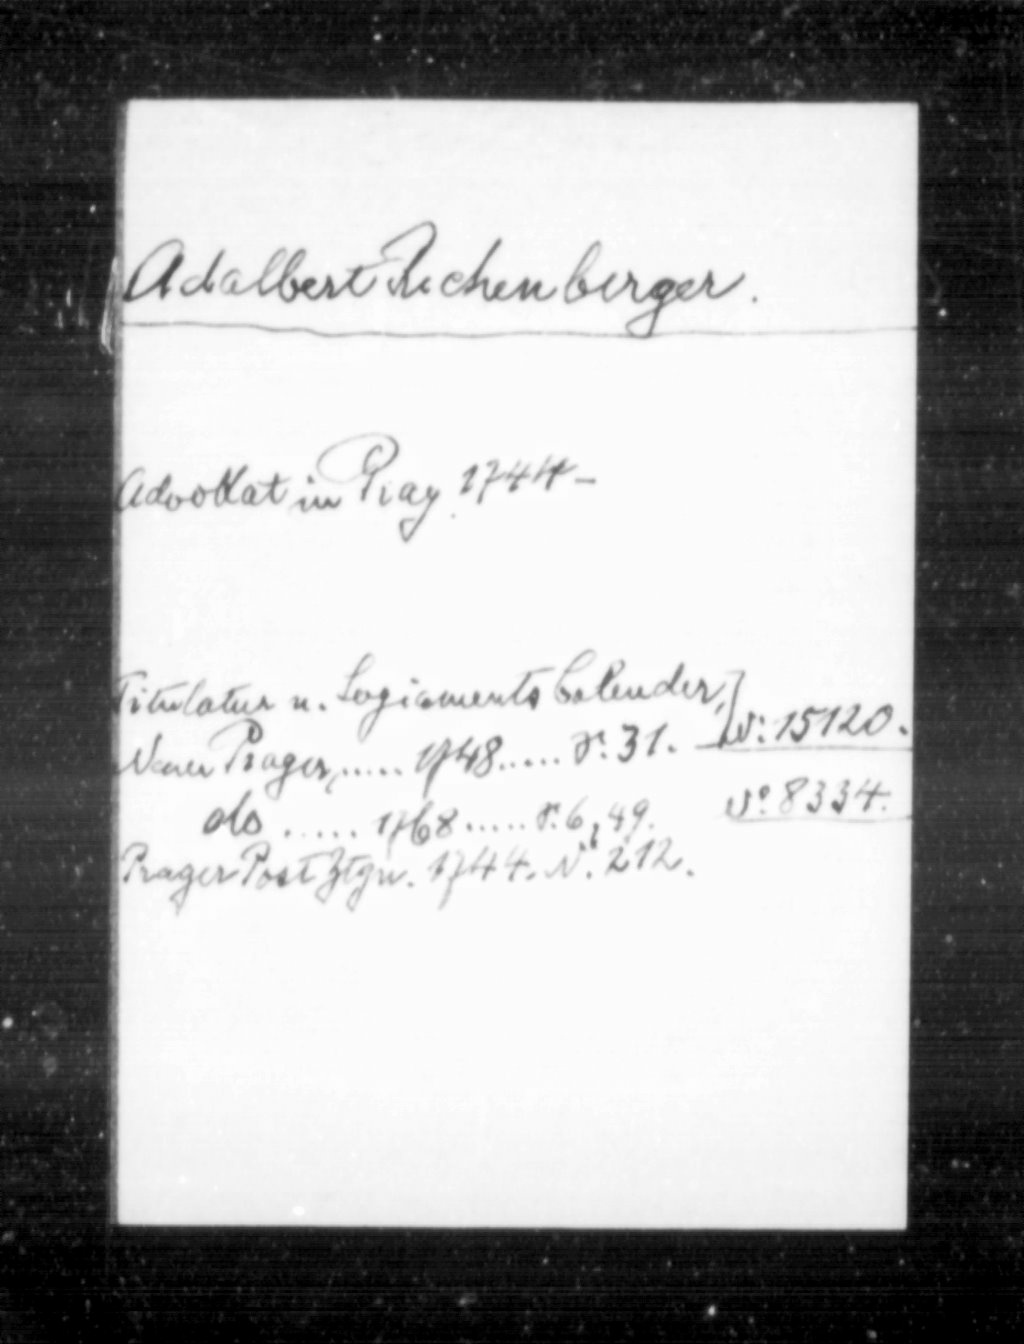 Adalbert Richenberger.
Advokat in Prag 1744 –
Titulatur u. Logiaments Calender,
Neuer Prager, ..... 1748 ..... S. 31. N: 15120.
dto ..... 1768 ..... S. 6, 49. No 8334.
Prager Post Ztgn. 1744. No. 212.